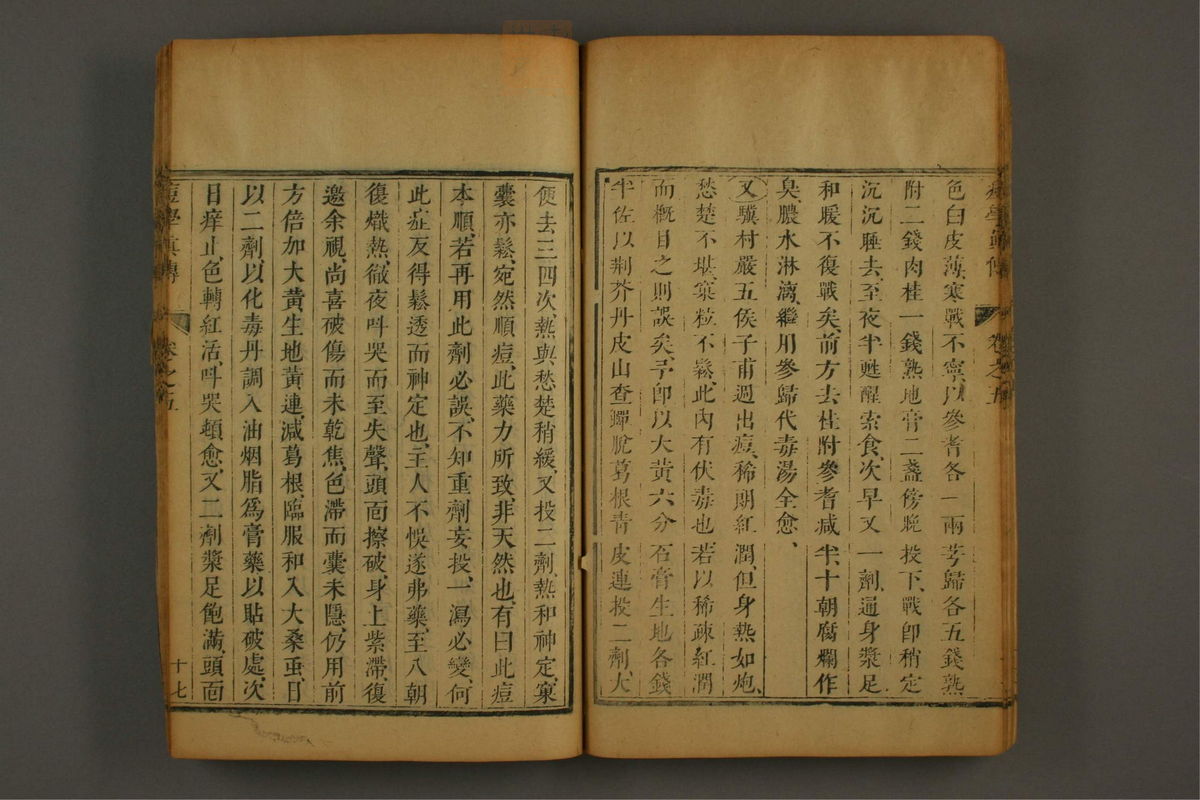 痘學真傳 卷之五
色白皮薄寒戰不寧以參耆各一兩芎歸各五錢熟
附二錢肉桂一錢熟地膏二盞傍晚投下戰即稍定
沉沉睡去至夜半甦醒索食次早又一劑通身漿足
和暖不復戰矣前方去桂附參耆减半十朝腐爛作
臭膿水淋漓繼用參歸代毒湯全愈、
又驥村嚴五侯子甫週出痘、稀朗紅潤、但身熱如炮、
愁楚不堪、窠粒不鬆、此內有伏毒也、若以稀疎紅潤
而概目之則誤矣、予卽以大黃六分石膏生地各錢
半佐以荆芥丹皮山查蟬脫葛根青皮連投二劑、大
便去三四次、熱與愁楚稍緩、又投二劑、熱和神定、窠
囊亦鬆、宛然順痘、此藥力所致非天然也、有曰此痘
本順、若再用此劑必誤、不知重劑妄投、一瀉必變、何
此症反得鬆透而神定也、主人不悞遂弗藥至八朝
復熾熱、徹夜呌哭而至失聲、頭面擦破、身上紫滯、復
邀余視、尚喜破傷而未乾焦、色滯而囊未隱、仍用前
方倍加大黃生地黃連、减葛根、臨服和入大桑䖝、日
以二劑以化毒丹調入油烟脂爲膏藥以貼破處、次
日痒止、色轉紅活、呌哭頓愈、又二劑漿足飽滿、頭面
痘學真傳 卷之五 十七